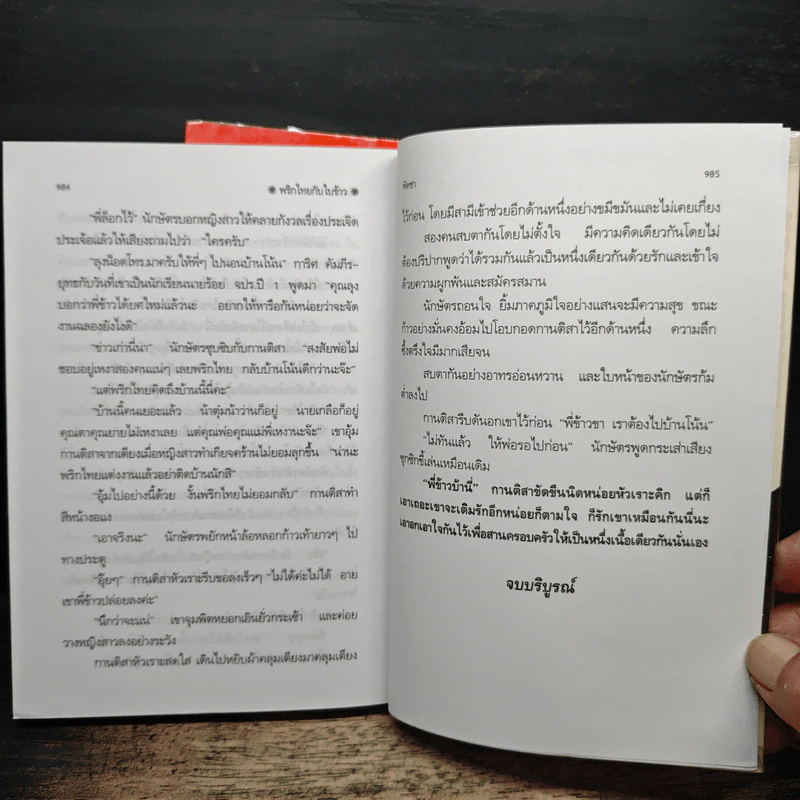 984
❋ พริกไทยกับใบข้าว ❋
"พี่ล็อกไว้" นักษัตรบอกหญิงสาวให้คลายกังวลเรื่องประเจิด
ประเจ้อแล้วให้เสียงถามไปว่า "ใครครับ"
"ลุงน็อตโทร.มาครับให้พี่ๆ ไปนอนบ้านโน้น" การิศ คัมภีร-
ยุทธกับวันที่เขาเป็นนักเรียนนายร้อย จปร.ปี 1 พูดมา "คุณลุง
บอกว่าพี่ข้าวได้ยศใหม่แล้วนะ อยากให้หารือกันหน่อยว่าจะจัด
งานฉลองยังไงดี"
"ข่าวเก่านี่นา" นักษัตรซุบซิบกับกานติสา "สงสัยพ่อไม่
ชอบอยู่เหงาสองคนแน่ๆ เลยพริกไทย กลับบ้านโน้นดีกว่านะจ๊ะ"
"แต่พริกไทยคิดถึงบ้านนี้นี่คะ"
"บ้านนี้คนเยอะแล้ว น้าตุ่มน้าว่านก็อยู่ นายเกลือก็อยู่
คุณตาคุณยายไม่เหงาเลย แต่คุณพ่อคุณแม่พี่เหงานะจ๊ะ" เขาอุ้ม
กานติสาจากเตียงเมื่อหญิงสาวทำเกียจคร้านไม่ยอมลุกขึ้น "น่านะ
พริกไทยแต่งงานแล้วอย่าติดบ้านนักสิ"
"อุ้มไปอย่างนี้ด้วย งั้นพริกไทยไม่ยอมกลับ" กานติสาทำ
สีหน้างอแง
"เอาจริงนะ" นักษัตรพยักหน้าล้อหลอกก้าวเท้ายาวๆ ไป
ทางประตู
"อุ๊ยๆ" กานติสาหัวเราะรีบขอลงเร็วๆ "ไม่ได้ค่ะไม่ได้ อาย
เขาพี่ข้าวปล่อยลงค่ะ"
"นึกว่าจะแน่" เขาจุมพิตหยอกเอินยั่วกระเซ้า และค่อย
วางหญิงสาวลงอย่างระวัง
กานติสาหัวเราะสดใส เดินไปหยิบผ้าคลุมเตียงมาคลุมเตียง
985
ไว้ก่อน โดยมีสามีเข้าช่วยอีกด้านหนึ่งอย่างขมีขมันและไม่เคยเกี่ยง
สองคนสบตากันโดยไม่ตั้งใจ มีความคิดเดียวกันโดยไม่
ต้องปริปากพูดว่าได้รวมกันแล้วเป็นหนึ่งเดียวกันด้วยรักและเข้าใจ
ด้วยความผูกพันและสมัครสมาน
นักษัตรถอนใจ ยิ้มภาคภูมิใจอย่างแสนจะมีความสุข ขณะ
ก้าวอย่างมั่นคงอ้อมไปโอบกอดกานติสาไว้อีกด้านหนึ่ง ความลึก
ซึ้งตรึงใจมีมากเสียจน
สบตากันอย่างอาทรอ่อนหวาน และใบหน้าของนักษัตรก้ม
ต่ำลงไป
กานติสารีบดันอกเขาไว้ก่อน "พี่ข้าวขา เราต้องไปบ้านโน้น"
"ไม่ทันแล้ว ให้พ่อรอไปก่อน" นักษัตรพูดกระเส่าเสียง
ซุกซิกขี้เล่นเหมือนเดิม
"พี่ข้าวบ้านี่" กานติสาขัดขืนนิดหน่อยหัวเราะคิก แต่ก็
เอาเถอะเขาจะเติมรักอีกหน่อยก็ตามใจ ก็รักเขาเหมือนกันนี่นะ
เอาอกเอาใจกันไว้เพื่อสานครอบครัวให้เป็นหนึ่งเนื้อเดียวกันนั่นเอง
จบบริบูรณ์